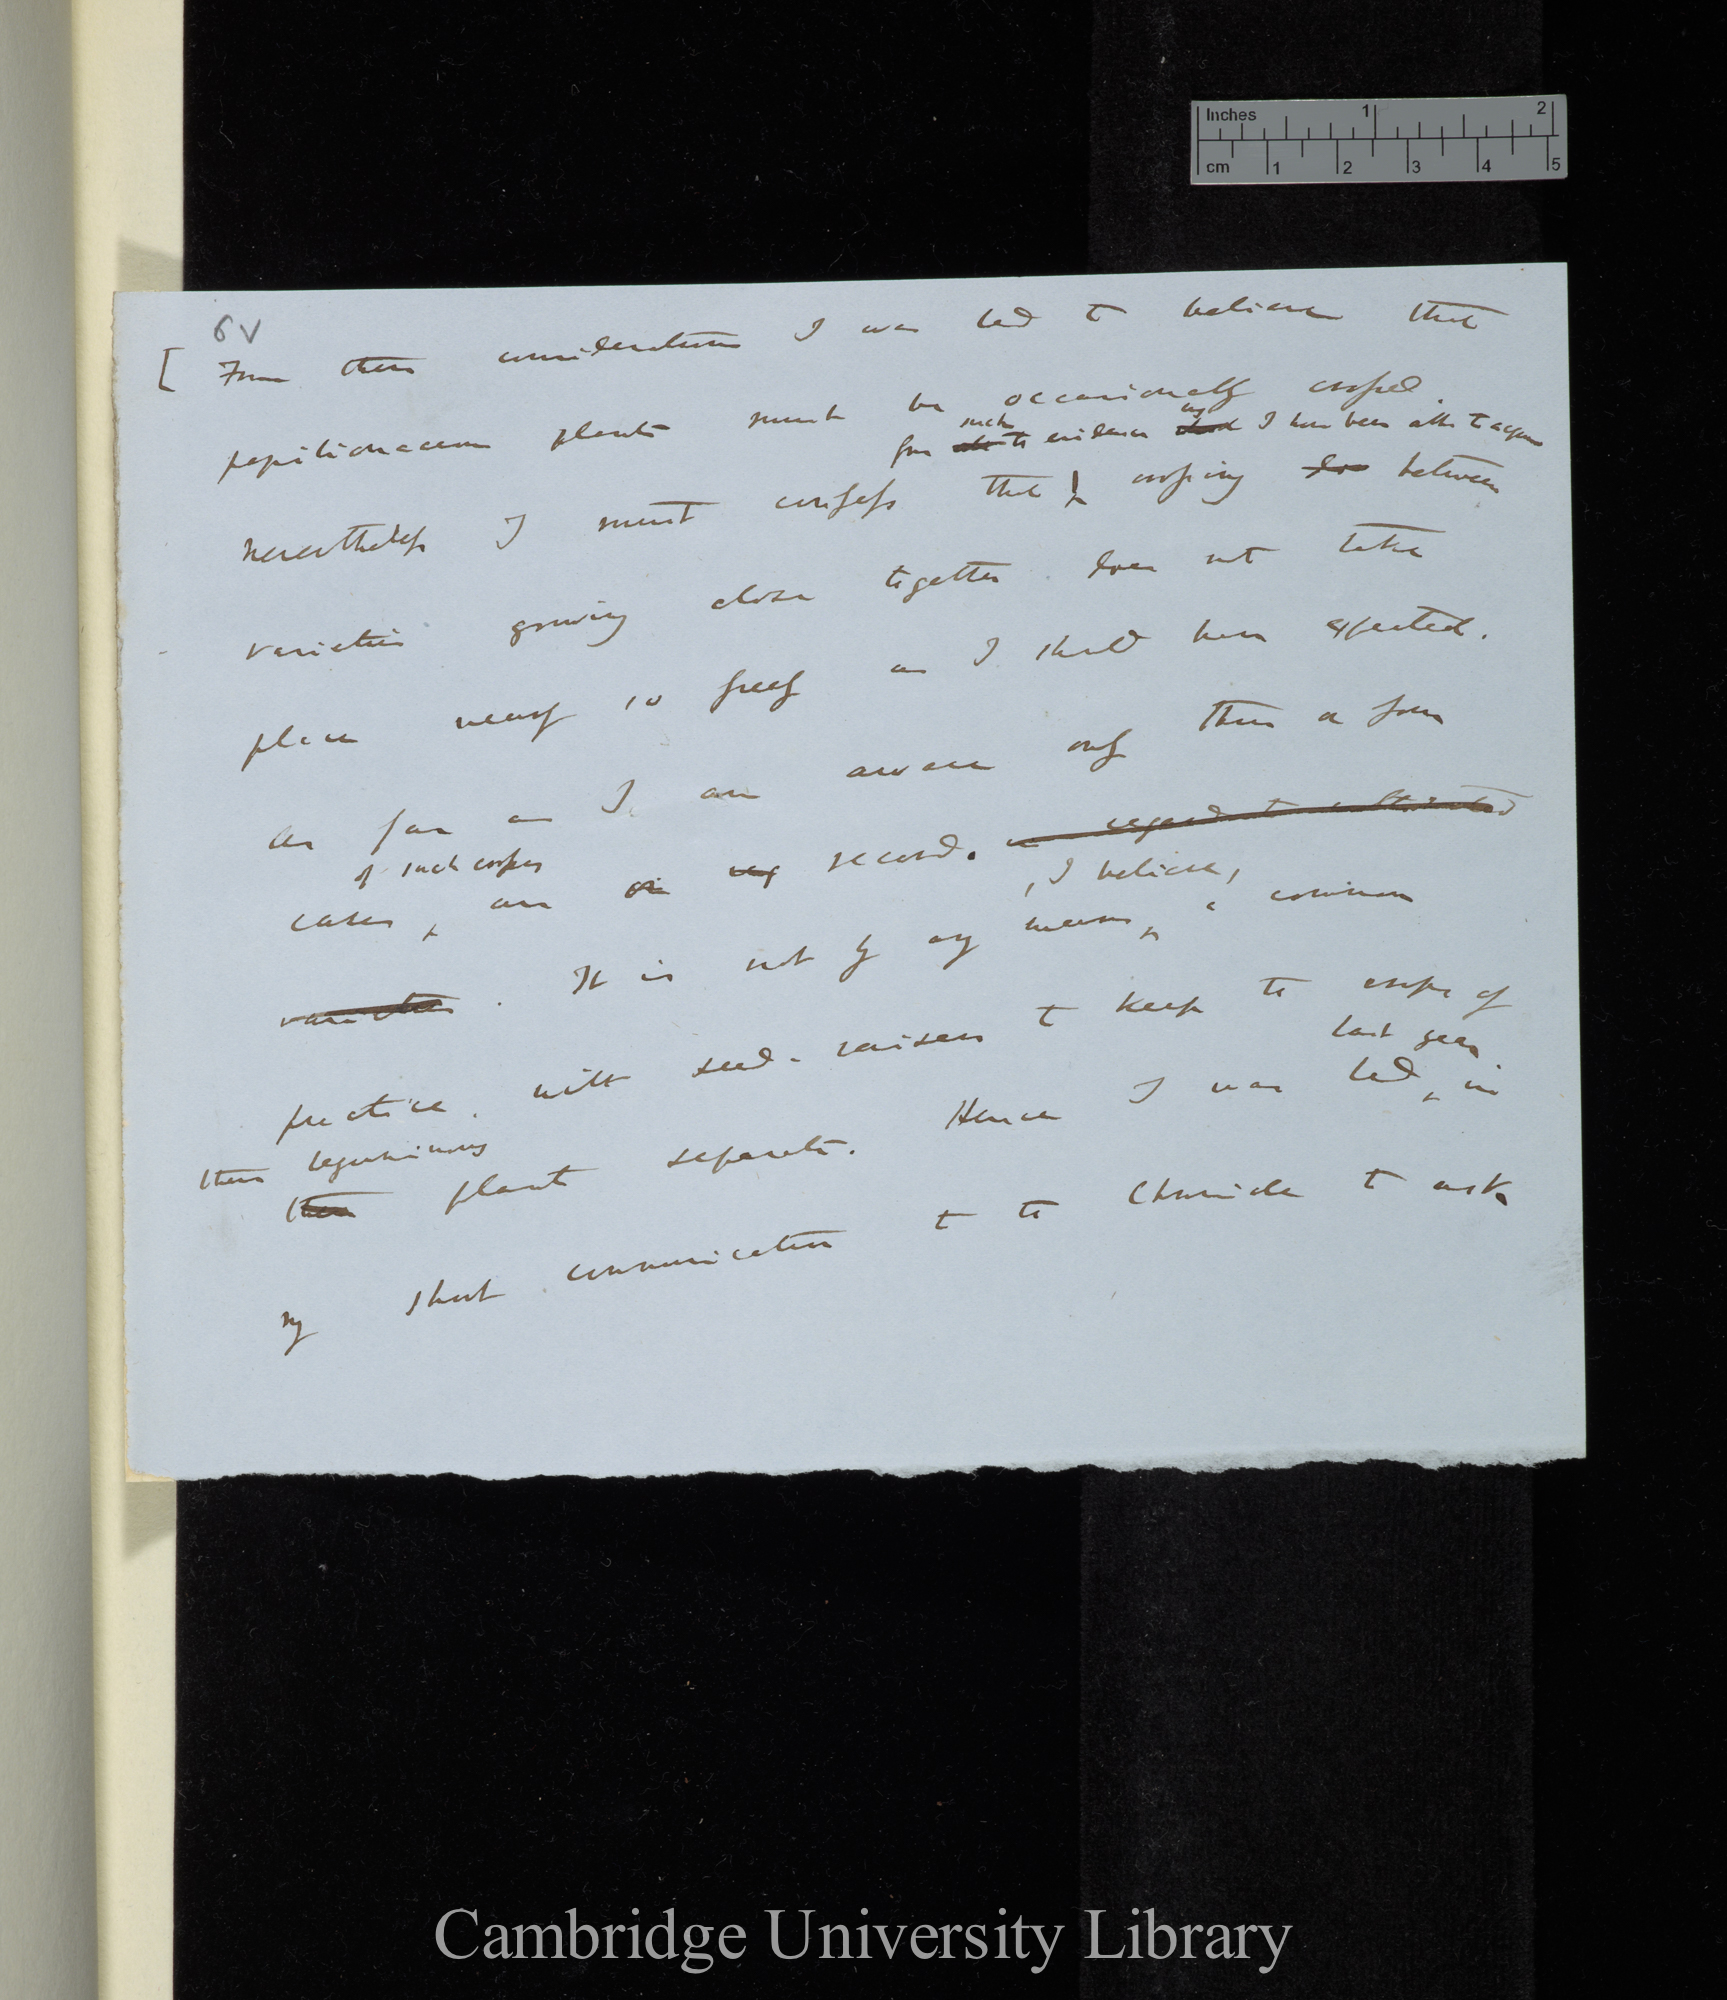 Inches 1 2
cm 1 2 3 4 5
6v
[ From these considerations I was led to believe that
papilionaceous plants must be occasionally crossed.
such as
from the evidence I have been able to acquire
nevertheless I must confess that crossing does between
varieties growing close together does not take
place nearly so freely as I should have expected.
As far as I am aware only three or four
in regard to cultivated
of such crosses
cases, are on record.
, I believe,
varieties. It is not by any means a common
practice with seed-raisers to keep the crops of
last year
these leguminous
plants separate. Hence I was led, in
my short communication to the Chronicle to ask
Cambridge University Library